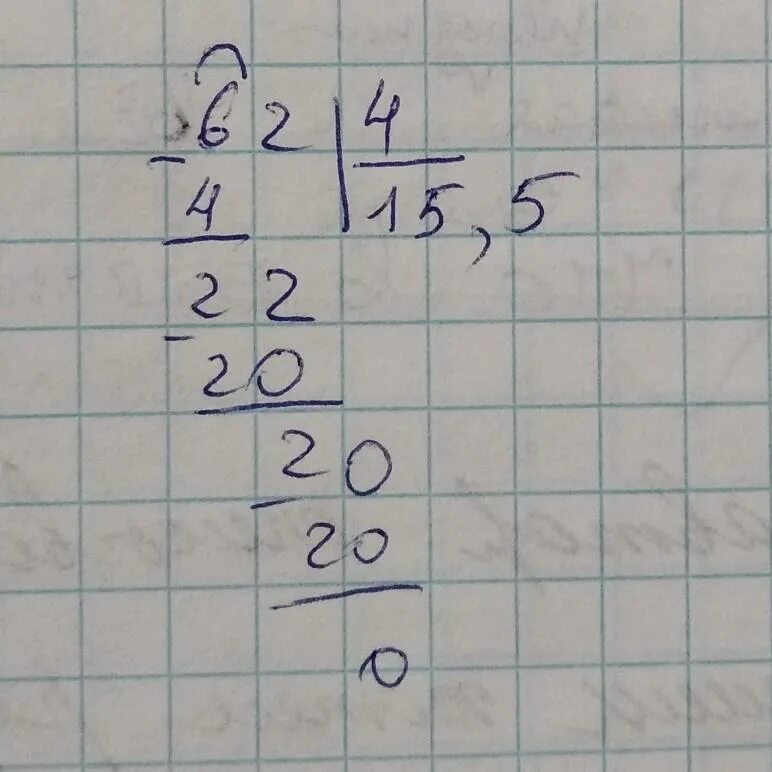 62 | 4
- 4 | 15,5
22
- 20
20
- 20
0